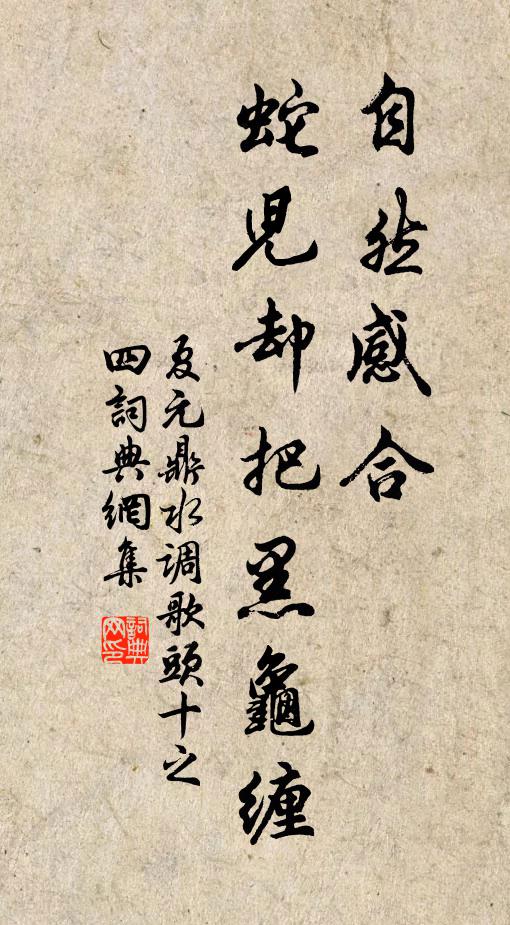 自然感合
蛇児却把黑龜缠
夏元鼎水调歌頭十之
四詞典網集
詞典网印